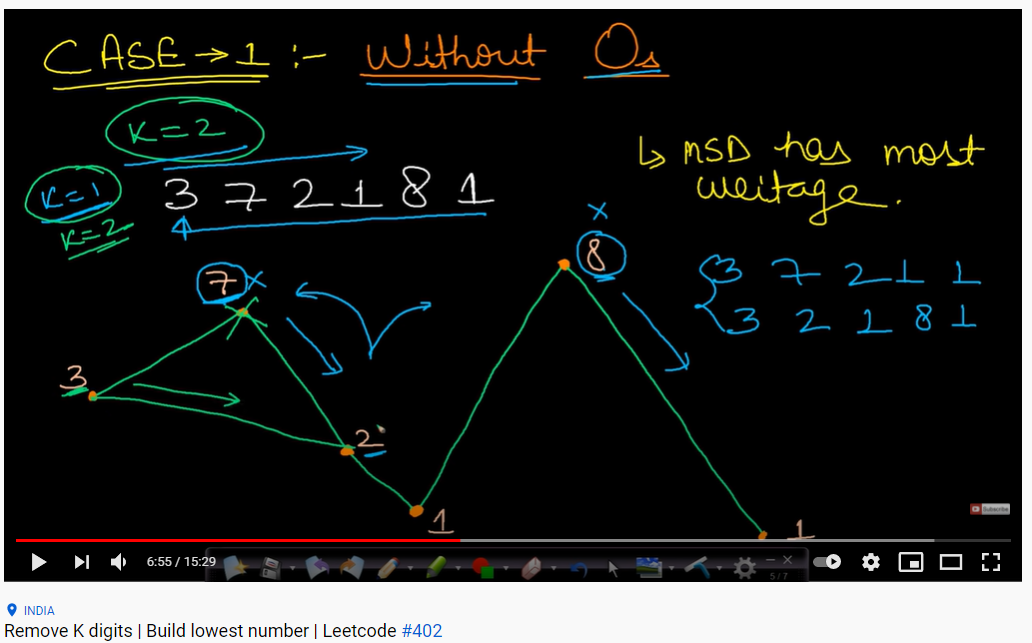 CASE → 1 :- Without 0s
K = 2
↳ MSD has most
weitage.
K=1 3 7 2 1 8 1
K=2
x
7 x
8
3 7 2 1 1
3 2 1 8 1
3
2
1
1
Subscribe
6:55 / 15:29
5/7
INDIA
Remove K digits | Build lowest number | Leetcode #402